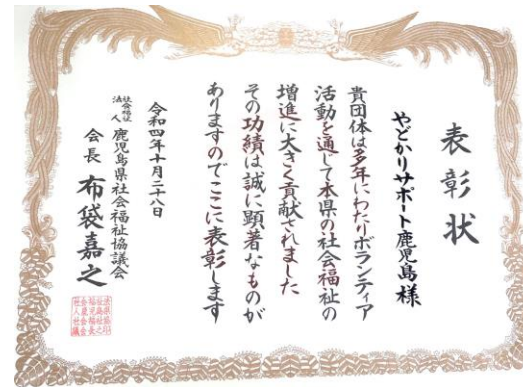 表彰状
やどかりサポート鹿児島様
貴団体は多年にわたりボランティア
活動を通じて本県の社会福祉の
増進に大きく貢献されました
その功績は誠に顕著なものが
ありますのでここに表彰します
令和四年十月二十八日
社会福祉法人 鹿児島県社会福祉協議会
会長 布袋嘉之